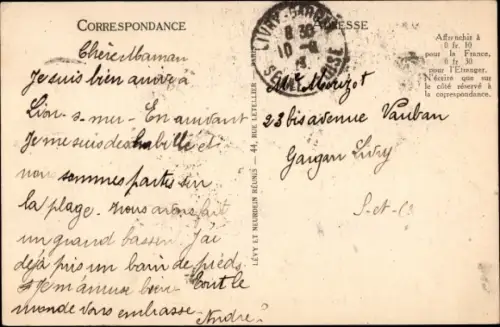 CORRESPONDANCE
ADRESSE
Affranchir à
0 fr. 10
pour la France,
0 fr. 30
pour l'Etranger.
N'écrire que sur
le côté réservé à
la correspondance.
Chère Maman
Je suis bien arrivé à
Lion-s-mer - En arrivant
Je me suis deshabillé et
nous sommes partis sur
la plage. Nous avons fait
un grand bassin J'ai
déjà pris un bain de pieds
Je m'amuse bien - Tout le
monde vous embrasse
André
LIVRY-GARGAN
8 30
10 - 8
SEINE ET OISE
LÉVY ET NEURDEIN RÉUNIS — 44, RUE LETELLIER
Me Morizot
23 bis avenue Vauban
Gargan Livry
S-et-O